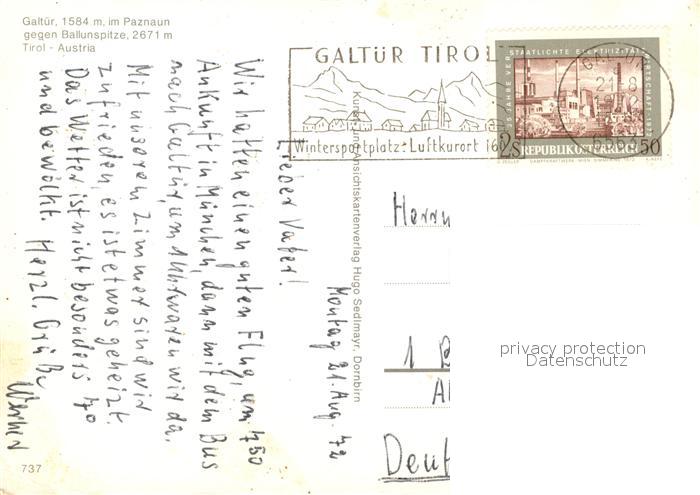 Galtür, 1584 m, im Paznaun
gegen Ballunspitze, 2671 m
Tirol - Austria
GALTÜR TIROL
Wintersportplatz-Luftkurort 160
25 JAHRE VERSTAATLICHTE ELEKTRIZITÄTSWIRTSCHAFT · 1972
2s REPUBLIK ÖSTERREICH 50
21.8
Kunst- und Ansichtskartenverlag Hugo Sedlmayr, Dornbirn
Montag 21. Aug. 72
Lieber Vater!
Wir hatten einen guten Flug, um 750
Ankunft in München, dann mit dem Bus
nach Galtür, um Uhr waren wir da.
Mit unserem Zimmer sind wir
zufrieden, es ist etwas geheizt.
Das Wetter ist nicht besonders 7°
und bewölkt. Herzl. Grüße
Werner
Herrn
1
Deut
privacy protection
Datenschutz
737